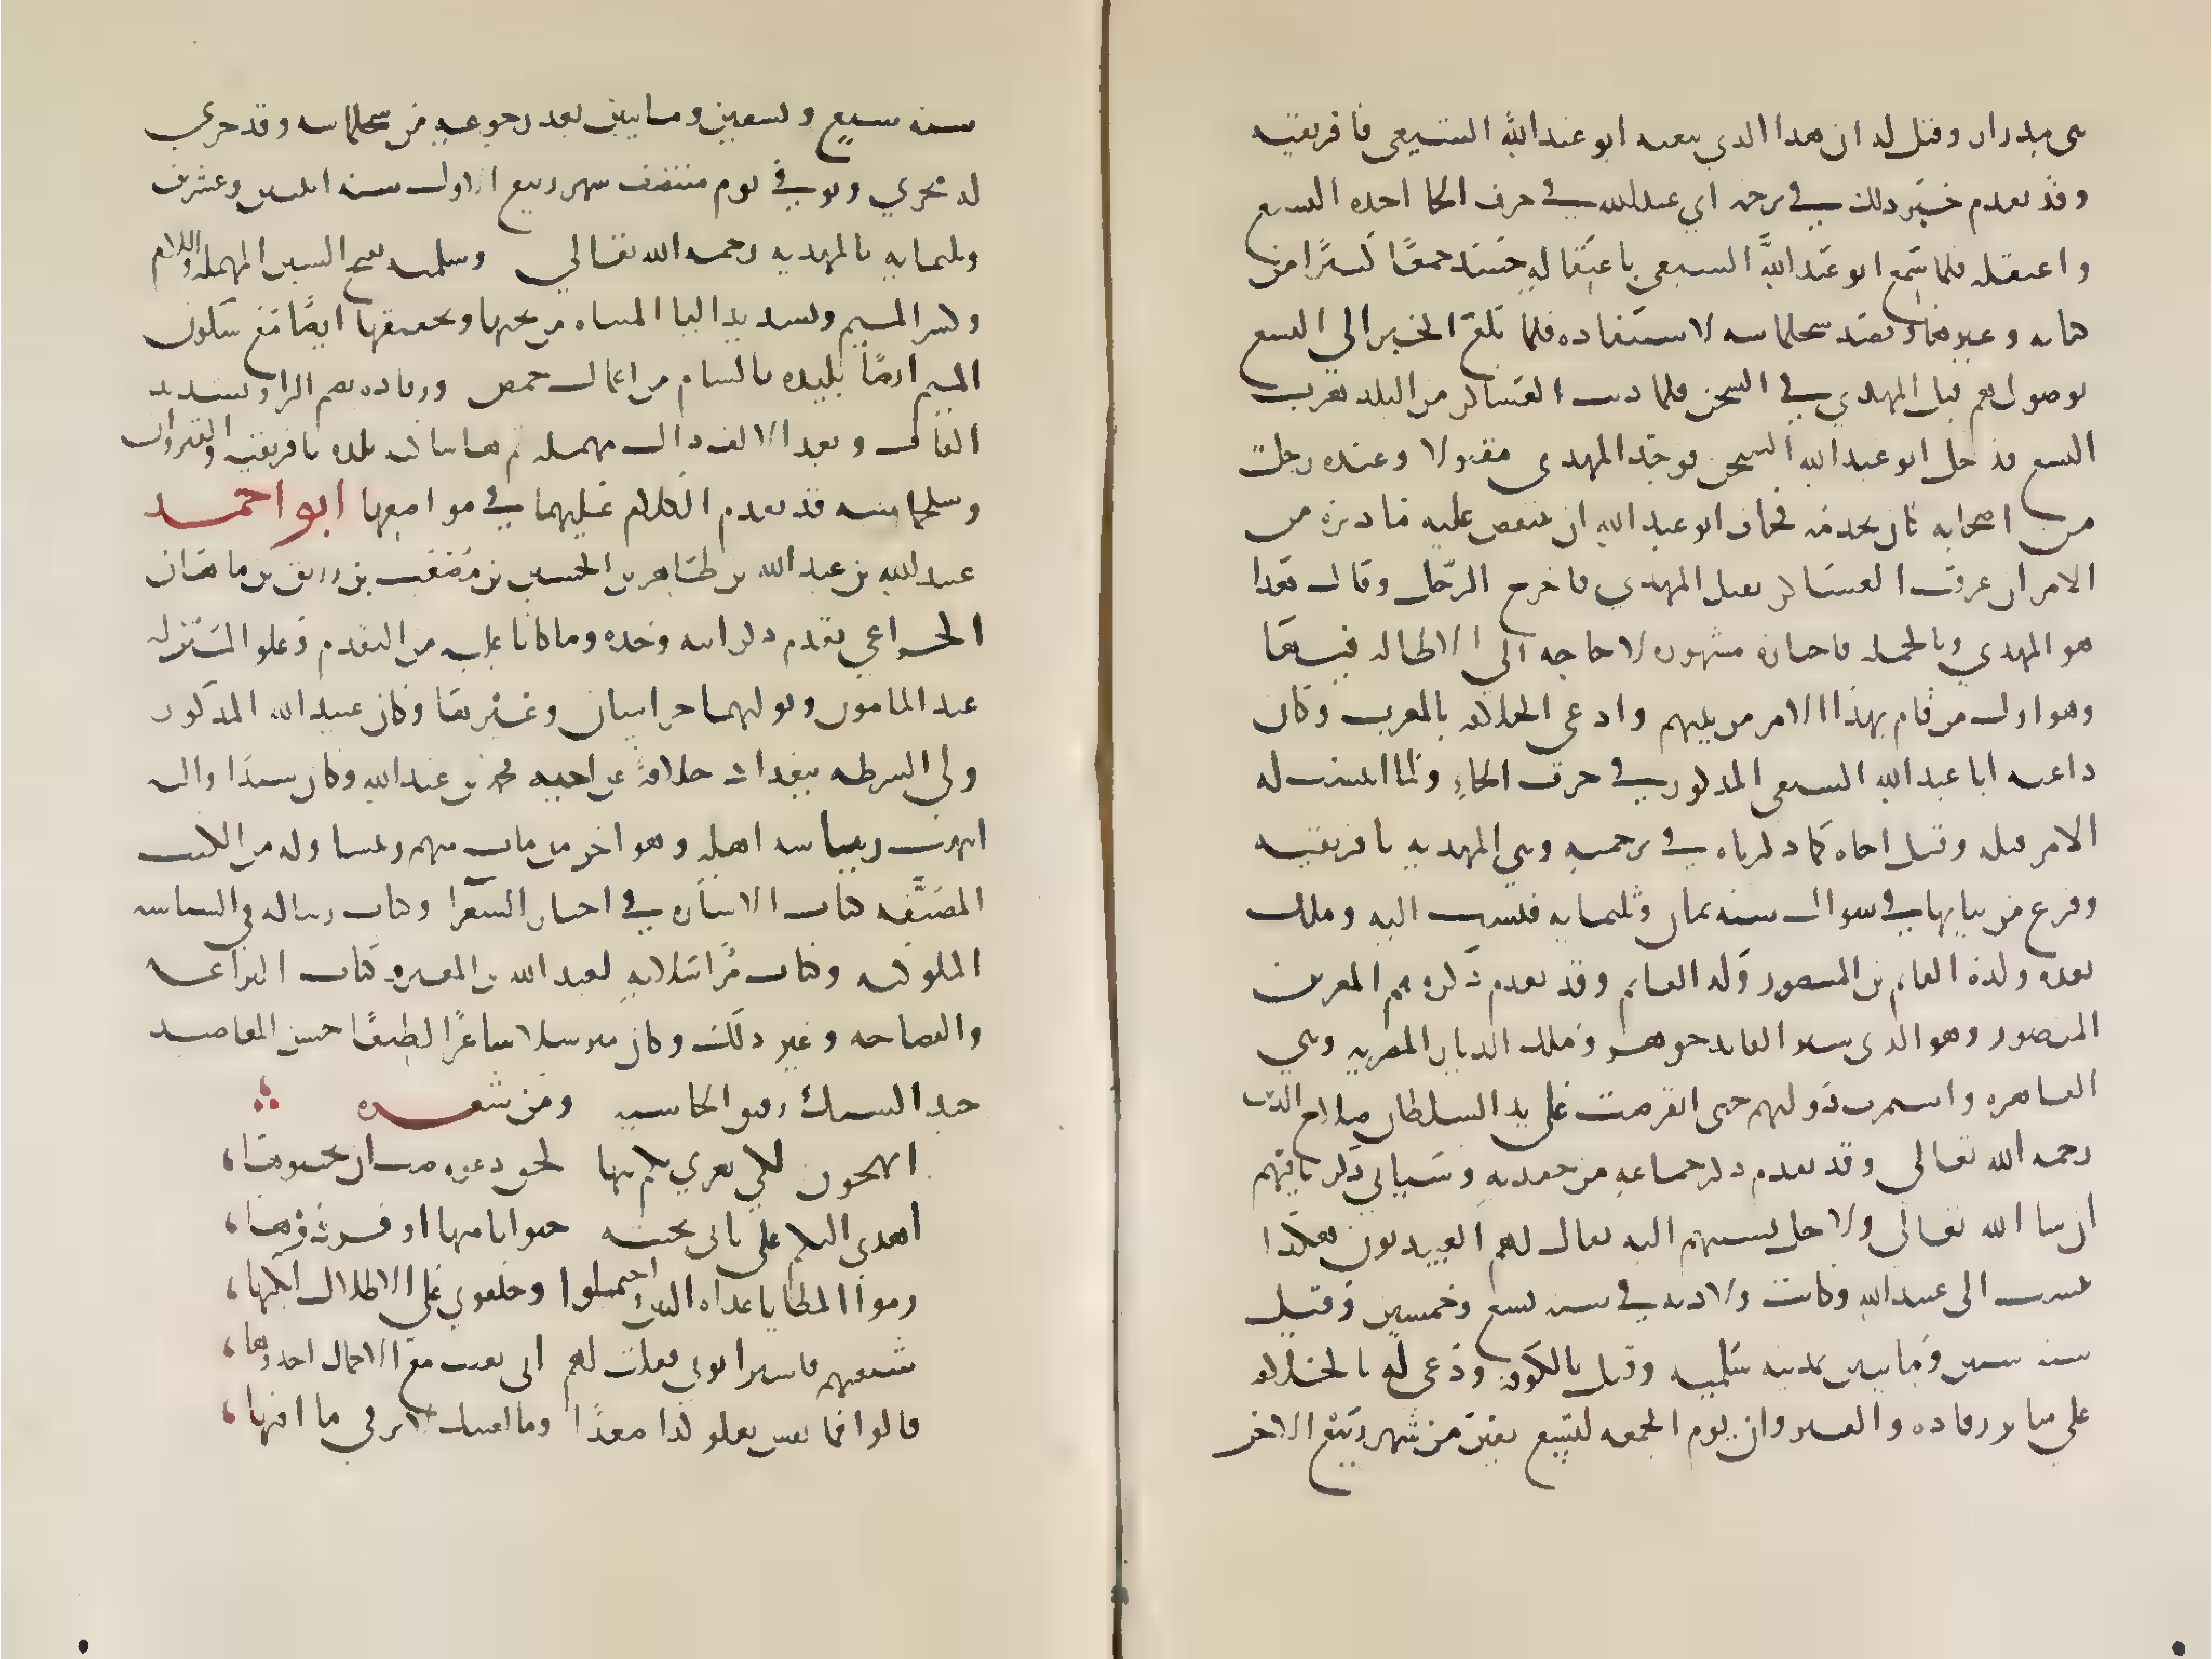 بني مدرار وقيل له ان هذا الذي يدعو اليه ابو عبد الله الشيعي بافريقيه
وقد تقدم خبر ذلك في ترجمه ابي عبد الله في حرف الحا اخذه اليسع
واعتقله فلما سمع ابو عبد الله الشيعي باعتقاله حشد جمعا كثيرا من
كتامه وغيرها وقصد سجلماسه لاستنقاده فلما بلغ الخبر الى اليسع
بوصولهم قتل المهدي في السجن فلما دنت العساكر من البلد هرب
اليسع فدخل ابو عبد الله السجن فوجد المهدي مقتولا وعنده رجل
من اصحابه كان يخدمه فخاف ابو عبد الله ان ينتقض عليه ما دبره من
الامر ان عرفت العساكر بقتل المهدي فاخرج الرجل وقال هذا
هو المهدي وبالجمله فاخباره مشهوره لا حاجه الى الاطاله فيها
وهو اول من قام بهذا الامر من بيتهم وادعى الخلافه بالمغرب وكان
داعيه ابا عبد الله الشيعي المذكور في حرف الحاء ولما استتب له
الامر قتله وقتل اخاه كما ذكرناه في ترجمته وبنى المهديه بافريقيه
وفرغ من بنايها في شوال سنه ثمان وثلثمايه فنسبت اليه وملك
بعده ولده القايم بن المنصور ولد القايم وقد تقدم ذكره ثم المعز بن
المنصور وهو الذي سير القايد جوهر وملك الديار المصريه وبنى
القاهره واستمرت دولتهم حتى انقرضت على يد السلطان صلاح الدين
رحمه الله تعالى وقد تقدم ذكر جماعه من حفدته وسياتي ذكر باقيهم
ان شا الله تعالى ولاجل نسبتهم اليه يقال لهم العبيديون هكذا
ينسب الى عبيد الله وكانت ولادته في سنه تسع وخمسين وقيل
سنه ستين ومايتين بمدينه سلميه وقيل بالكوفه ودعي له بالخلافه
على منابر رقاده والقيروان يوم الجمعه لتسع بقين من شهر ربيع الاخر
سنه سبع وتسعين ومايتين بعد رجوعه من سجلماسه وقد جرى
له ما جرى وتوفي يوم منتصف شهر ربيع الاول سنه اثنتين وعشرين
وثلثمايه بالمهديه رحمه الله تعالى وسلميه بفتح السين المهمله واللام
وكسر الميم وتشديد اليا المثناه من تحتها وتخفيفها ايضا مع سكون
الميم ايضا بليده بالشام من اعمال حمص ورقاده بفتح الرا وتشديد
القاف وبعد الالف دال مهمله ثم ها ساكنه بلده بافريقيه والقيروان
وسجلماسه قد تقدم الكلام عليهما في مواضعها ابو احمد
عبيد الله بن عبد الله بن طاهر بن الحسين بن مصعب بن رزيق بن ماهان
الخزاعي تقدم ذكر ابيه وجده وما كانا عليه من التقدم وعلو المنزله
عند المامون وتوليهما خراسان وغيرها وكان عبيد الله المذكور
ولي الشرطه ببغداد خلافه عن اخيه محمد بن عبد الله وكان سيدا واليه
انتهت رياسه اهله وهو اخر من مات منهم رئيسا وله من الكتب
المصنفه كتاب الاشاره في اخبار الشعرا وكتاب رساله في السياسه
الملوكيه وكتاب مراسلاته لعبد الله بن المعتز وكتاب البراعه
والفصاحه وغير ذلك وكان مترسلا شاعرا لطيفا حسن المقاصد
جيد السبك رقيق الحاشيه ومن شعره
اهدى اليكم على نائي تحيته حيوا بامنها او فردوها
زموا المطايا غداه البين احتملوا وخلفوني على الاطلال ابكيها
شيعتهم فاسترابوني فقلت لهم اني بعثت مع الاجمال احدوها
قالوا فما نفس يعلو كذا صعدا وما لعينك لا ترقى ماقيها